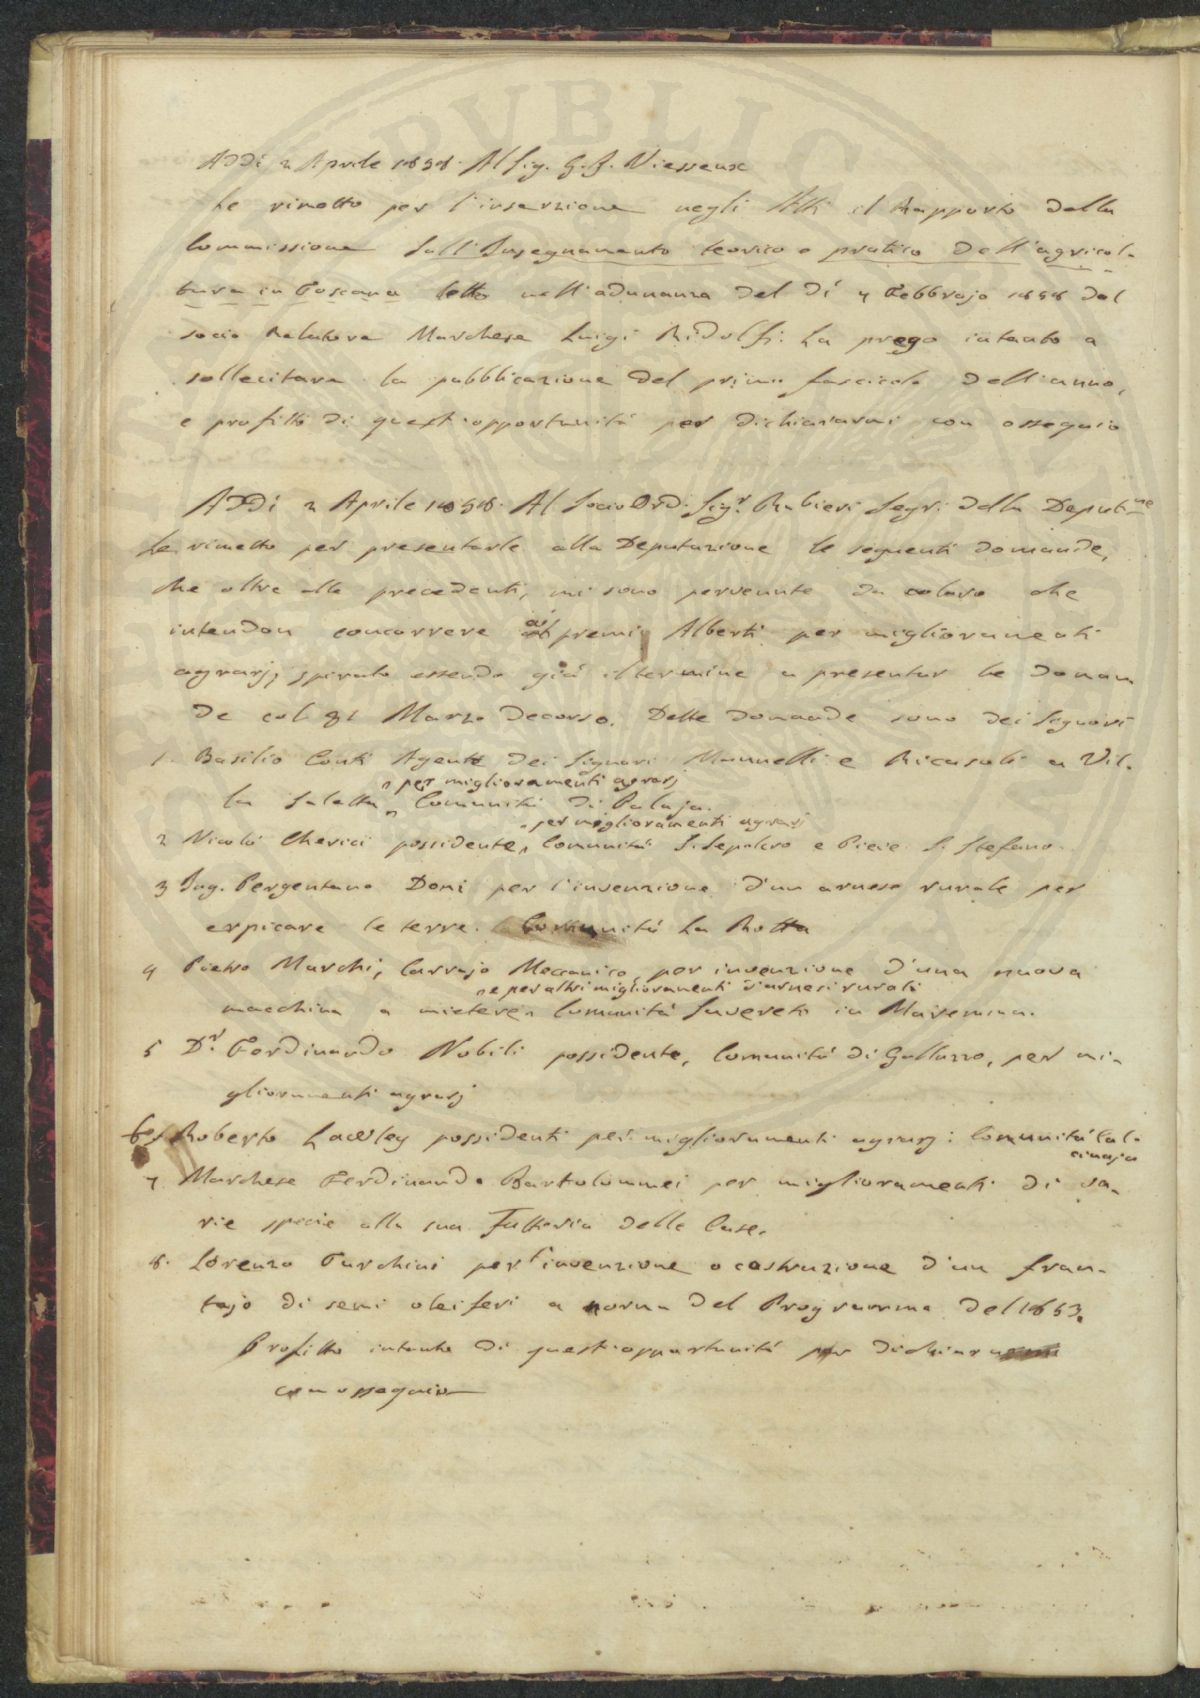 Addì 2 Aprile 1858. Al Sig. G. P. Viesseux
Le rimetto per l'inserzione negli Atti il Rapporto della
Commissione Sull'Insegnamento teorico e pratico dell'agricol-
tura in Toscana letto nell'adunanza del dì 7 Febbrajo 1858 dal
socio Relatore Marchese Luigi Ridolfi. La prego intanto a
sollecitare la pubblicazione del primo fascicolo dell'anno,
e profitto di quest'opportunità per dichiararmi con ossequio
Addì 2 Aprile 1858. Al Socio Ord. Sigr. Rubieri Segr. della Deputne
Le rimetto per presentarle alla Deputazione le seguenti domande,
che oltre alle precedenti, mi sono pervenute da coloro che
intendon concorrere ai premi Alberti per miglioramenti
agrarj, spirato essendo già il termine a presentar le doman
de col 31 Marzo decorso. Dette domande sono dei Signori
1. Basilio Conti Agente dei Signori Mannelli e Ricasoli a Vil-
per miglioramenti agrarj
la Saletta, Comunità di Palaja.
per miglioramenti agrarj
2 Nicolò Cherici possidente, Comunità S. Sepolcro e Pieve S. Stefano.
3 Ing. Pergentano Doni per l'invenzione d'un arnese rurale per
erpicare le terre. Comunità La Rotta
4 Pietro Marchi, Carrajo Meccanico, per invenzione d'una nuova
e per altri miglioramenti d'arnesi rurali
macchina a mietere. Comunità Suvereto in Maremma.
5 Dr. Ferdinando Nobili possidente, Comunità di Galluzzo, per mi-
glioramenti agrarj
6 Roberto Lawley possidenti per miglioramenti agrarj: Comunità Cal-
cinaja
7 Marchese Ferdinando Bartolommei per miglioramenti di va-
rie specie alla sua Fattoria delle Case.
8. Lorenzo Turchini per l'invenzione o costruzione d'un fran-
tojo di semi oleiferi a norma del Programma del 1853.
Profitto intanto di quest'opportunità per dichiararmi
con ossequio